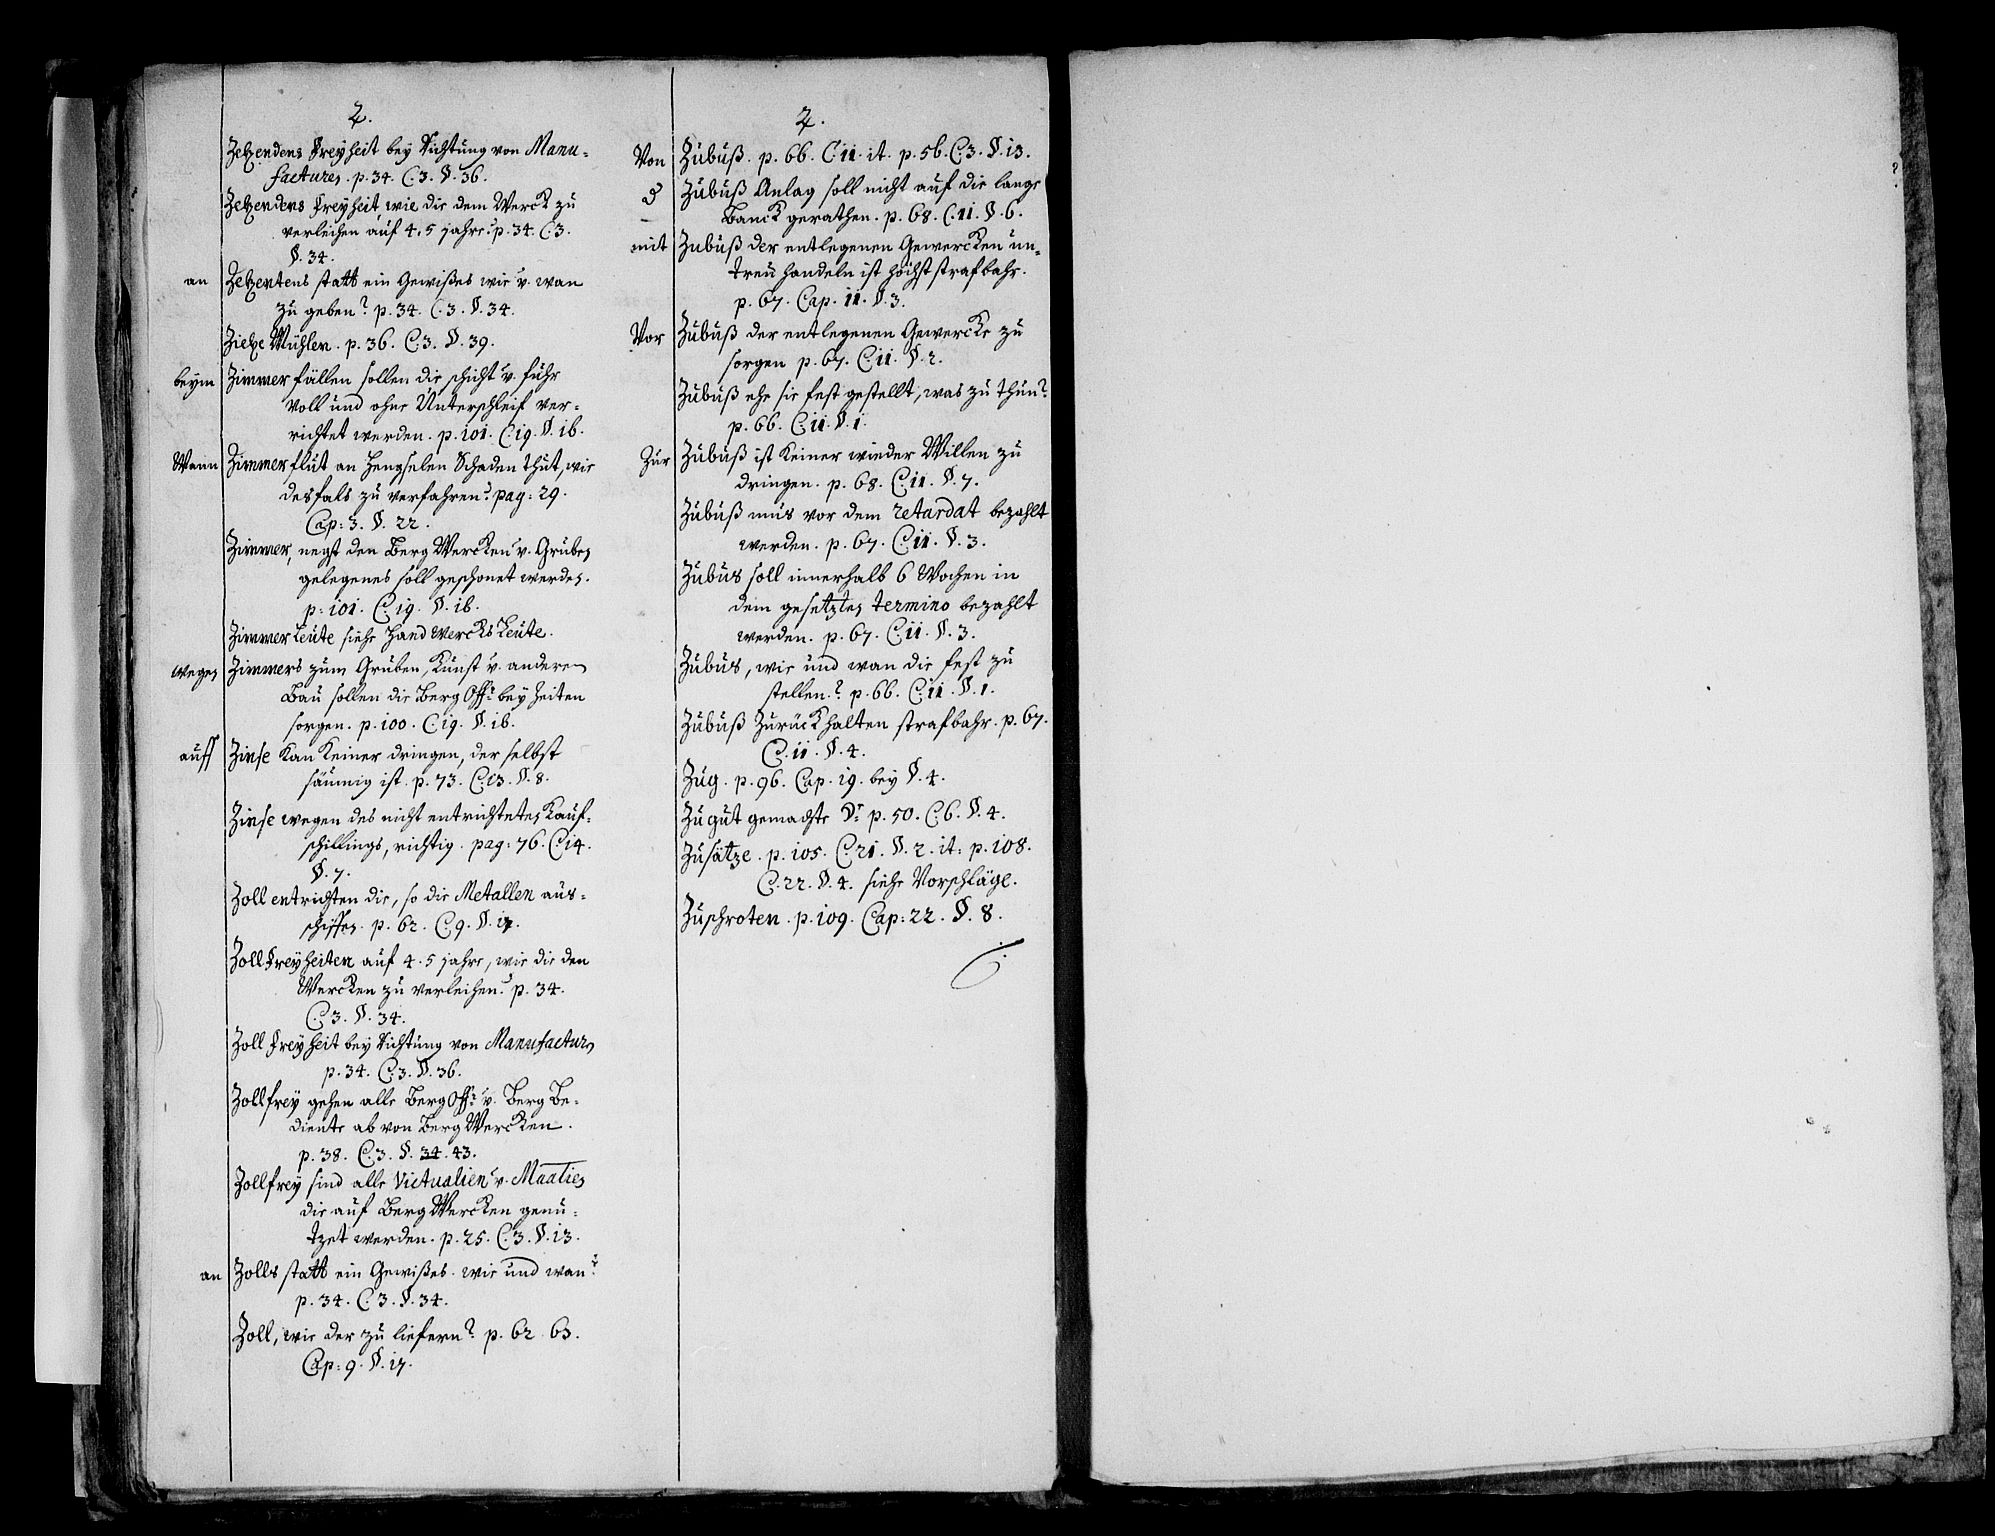 Z.
Zehendens Freyheit bey Richtung von Manu-
facturen. p. 34. C. 3. §. 36.
Zehendens Freyheit wie die dem Werck zu
verleihen auf 4. 5 jahre? p. 34. C. 3.
§. 34.
an Zehentens statt ein Gewißes wie v. wan
zu geben? p. 34. C. 3. §. 34.
Ziehe Mühlen. p. 36. C. 3. §. 39.
beym Zimmer fällen sollen die schicht v. fuhr
voll und ohne Unterschleif ver-
richtet werden. p. 101. C. 19. §. 16.
Wann Zimmerflut an Schaden thut, wie
desfals zu verfahren? pag: 29.
Cap: 3. §. 22.
Zimmer, negst den Berg Wercken v. Gruben
gelegenes soll geschonet werden.
p: 101. C. 19. §. 16.
Zimmer Leute siehe Hand Wercks Leute.
wegen Zimmers zum Gruben, Kunst v. anderen
Bau sollen die Berg Off: bey Zeiten
sorgen. p. 100. C. 19. §. 16.
auff Zinse kan keiner dringen, der selbst
säumig ist. p. 73. C. 13. §. 8.
Zinse wegen des nicht entrichteten Kauf-
schillings, richtig. pag: 76. C. 14.
§. 7.
Zoll entrichten die, so die Metallen aus-
schiffen. p. 62. C. 9. §. 17.
Zoll Freyheiten auf 4. 5 jahre, wie die den
Wercken zu verleihen? p. 34.
C. 3. §. 34.
Zoll Freyheit bey Richtung von Manufacturen
p. 34. C. 3. §. 36.
Zollfrey gehen alle Berg Off: v. Berg Be-
diente ab von Berg Wercken.
p. 38. C. 3. §. 34. 43.
Zollfrey sind alle Victualien v. Maalien
die auf Berg Wercken genu-
tzet werden. p. 25. C. 3. §. 13.
an Zolls statt ein Gewißes. wie und wan?
p. 34. C. 3. §. 34.
Zoll, wie der zu liefern? p. 62. 63.
Cap: 9. §. 17.
Z.
Von Zubuß. p. 66. C. 11. it. p. 56. C. 3. §. 13.
Zubuß Anlag soll nicht auf die lange
Banck gerathen. p. 68. C. 11. §. 6.
mit Zubuß der entlegenen Gewercken un-
treu handeln ist höchst strafbahr.
p. 67. Cap. 11. §. 3.
Vor Zubuß der entlegenen Gewercke zu
sorgen p. 67. C. 11. §. 2.
Zubuß ehe sie fest gestellt, was zu thun?
p. 66. C. 11. §. 1.
Zur Zubuß ist keiner wieder Willen zu
dringen. p. 68. C. 11. §. 7.
Zubuß mus vor dem retardat bezahlt
werden. p. 67. C. 11. §. 3.
Zubus soll innerhalb 6 Wochen in
dem gesetzten termino bezahlt
werden. p. 67. C. 11. §. 3.
Zubus, wie und wan die fest zu
stellen? p. 66. C. 11. §. 1.
Zubuß Zurück halten strafbahr. p. 67.
C. 11. §. 4.
Zug. p. 96. Cap. 19. bey §. 4.
Zu gut gemachte p. 50. C. 6. §. 4.
Zusätze. p. 105. C. 21. §. 2. it: p. 108.
C. 22. §. 4. siehe Vorschläge.
Zuschroten. p. 109. Cap: 22. §. 8.